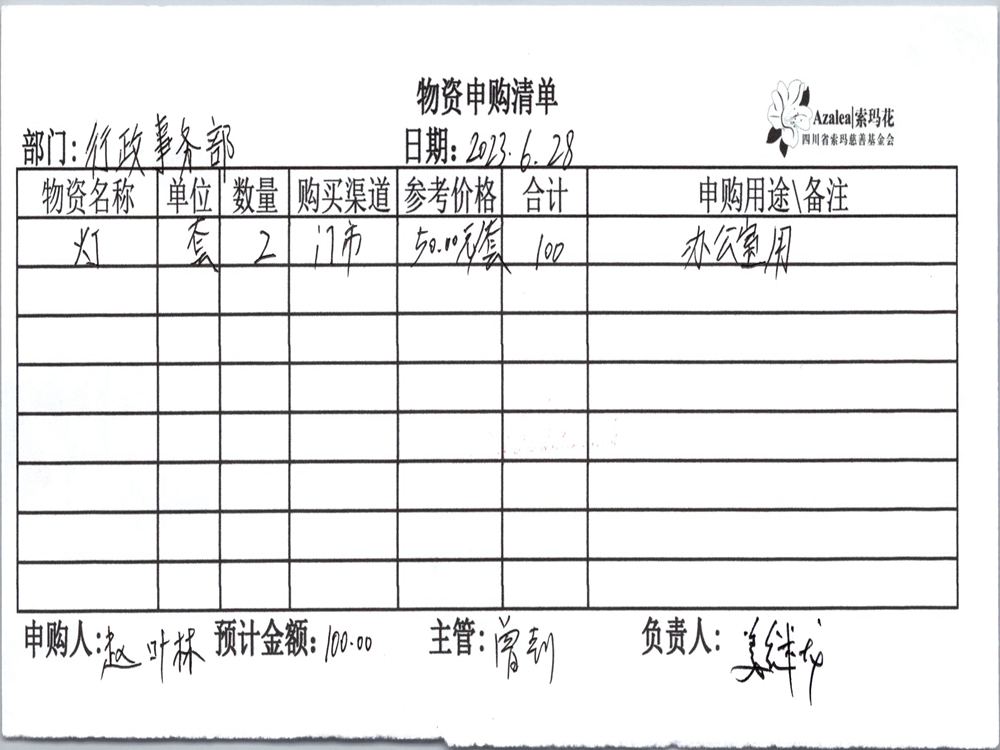 物资申购清单
Azalea|索玛花
四川省索玛慈善基金会
部门:行政事务部 日期:2023.6.28
物资名称 单位 数量 购买渠道 参考价格 合计 申购用途\备注
灯 套 2 门市 50.00元套 100 办公室用
申购人:赵叶林 预计金额:100.00 主管:曾 负责人: